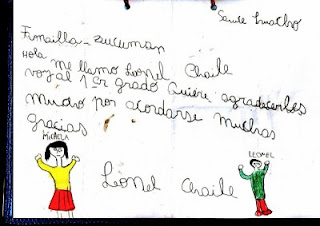 Fimailla-tucuman
Hola me llamo Leonel Chaile
voy al 1er grado Quiere agradacerbes
mucho por acordarse muchas
gracias
MICAELA
LEONEL
Leonel Chaile